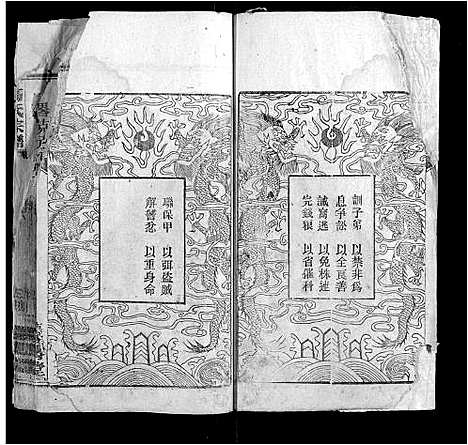 訓子弟 以禁非為
息爭訟 以全良善
誡窩逃 以免株連
完錢糧 以省催科
聯保甲 以弭盜賊
解讐忿 以重身命
氏宗譜